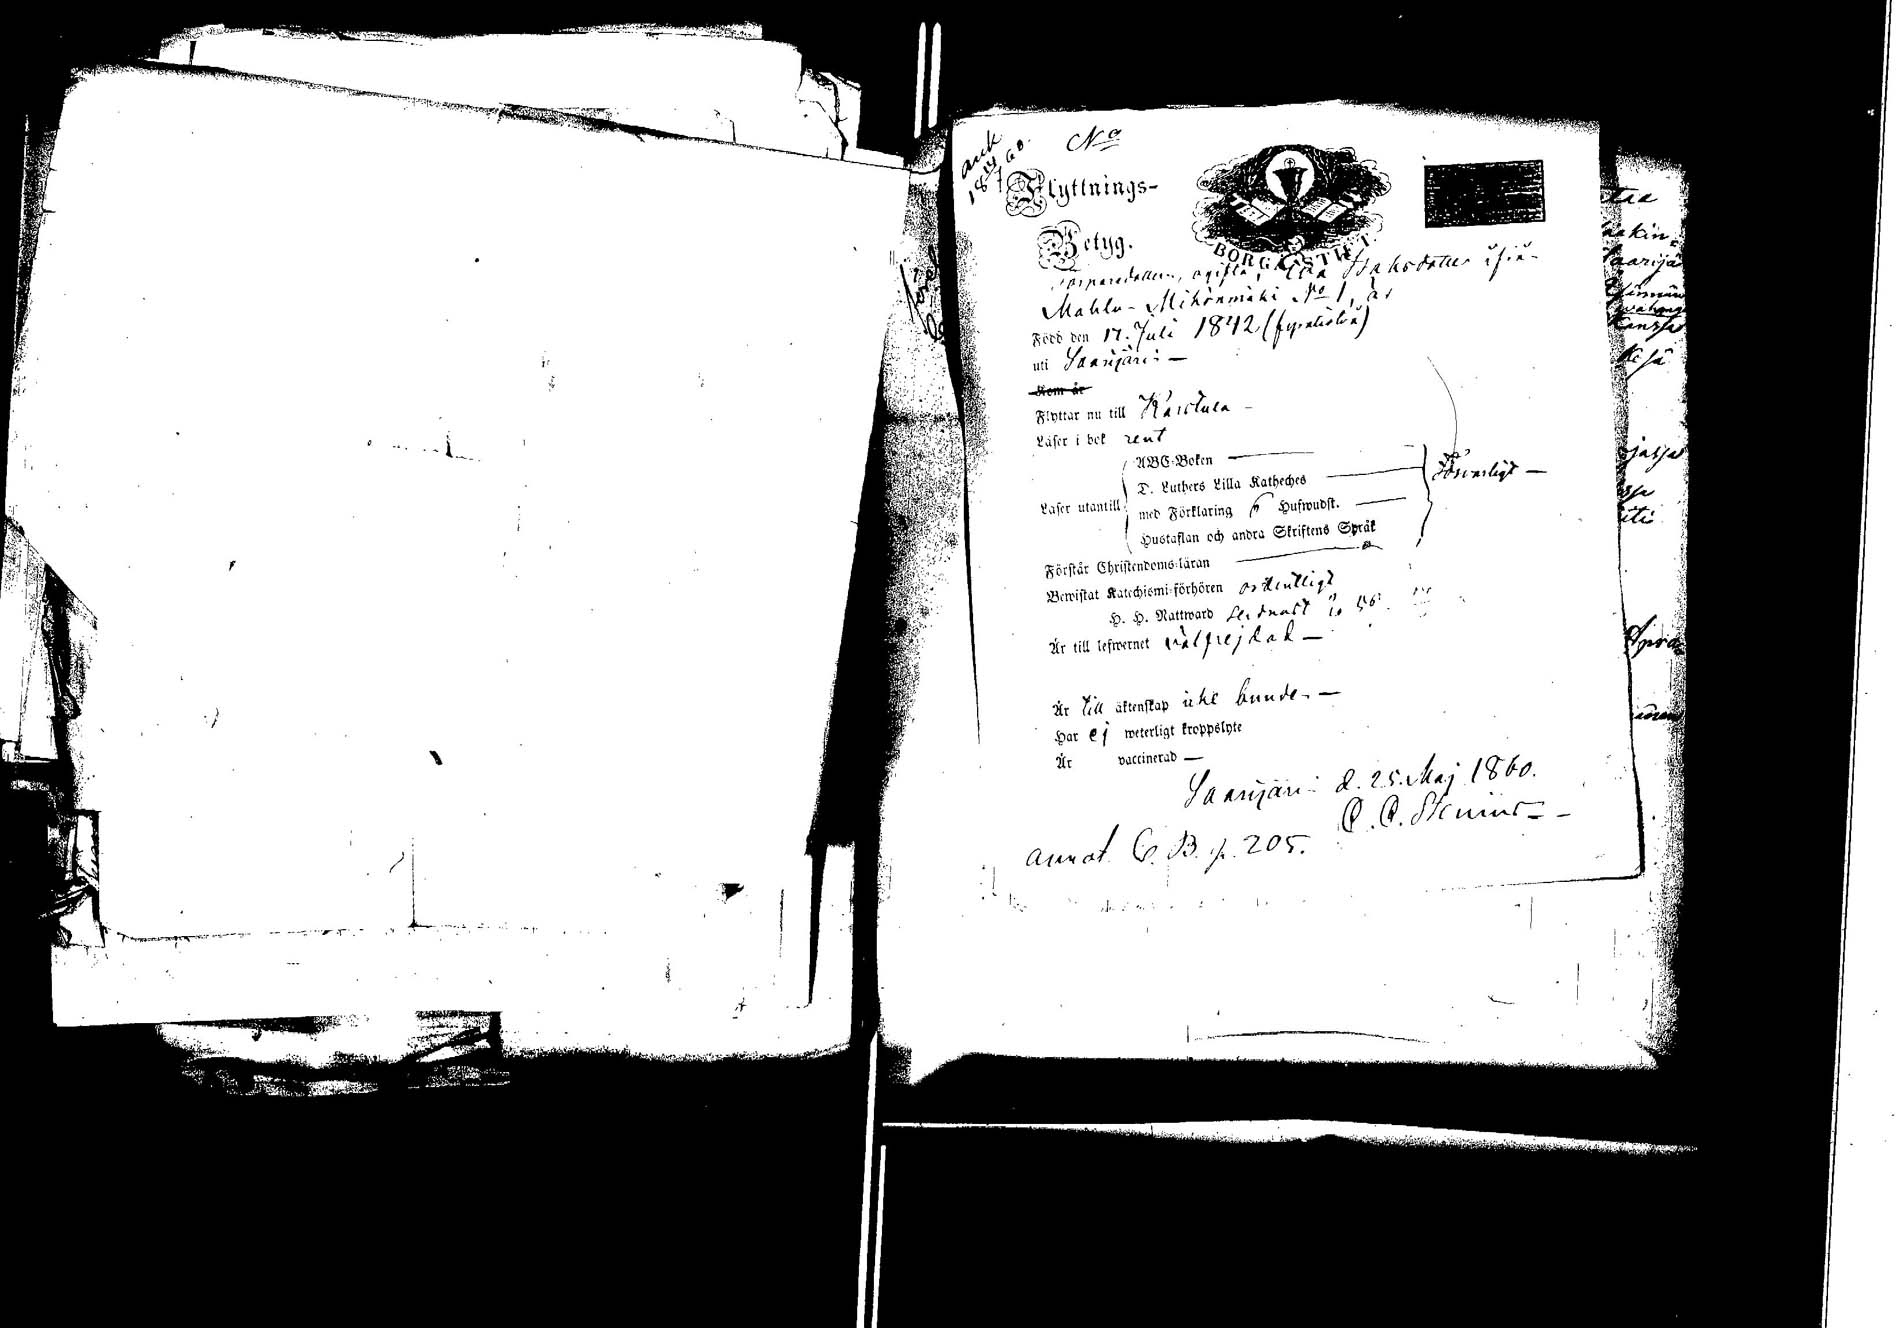 ank
18 14/7 60.
No
Flyttnings-
Betyg.
BORGÅ STIFT.
Torparedottern, ogifta, Isaksdotter ifrån
Mahlu- Mikonmäki No 1, är
Född den 17. Juli 1842 (fyratiotvå)
uti Saarijärvi —
Kom år
Flyttar nu till Karstula —
Läser i bok rent
ABC-Boken —
D. Luthers Lilla Katheches — Försvarligt —
Läser utantill med Förklaring 6 Hufwudst. —
Hustaflan och andra Skriftens Språk
Förstår Christendoms-läran —
Bewistat Katechismi-förhören ordentligt
H. H. Nattward sednast
Är till lefwernet välfrejdad —
Är till äktenskap icke bunden —
Har ej weterligt kroppslyte
Är vaccinerad —
Saarijärvi d. 25. Maj 1860.
C. C. Stenius
annot. C. B. p. 205.